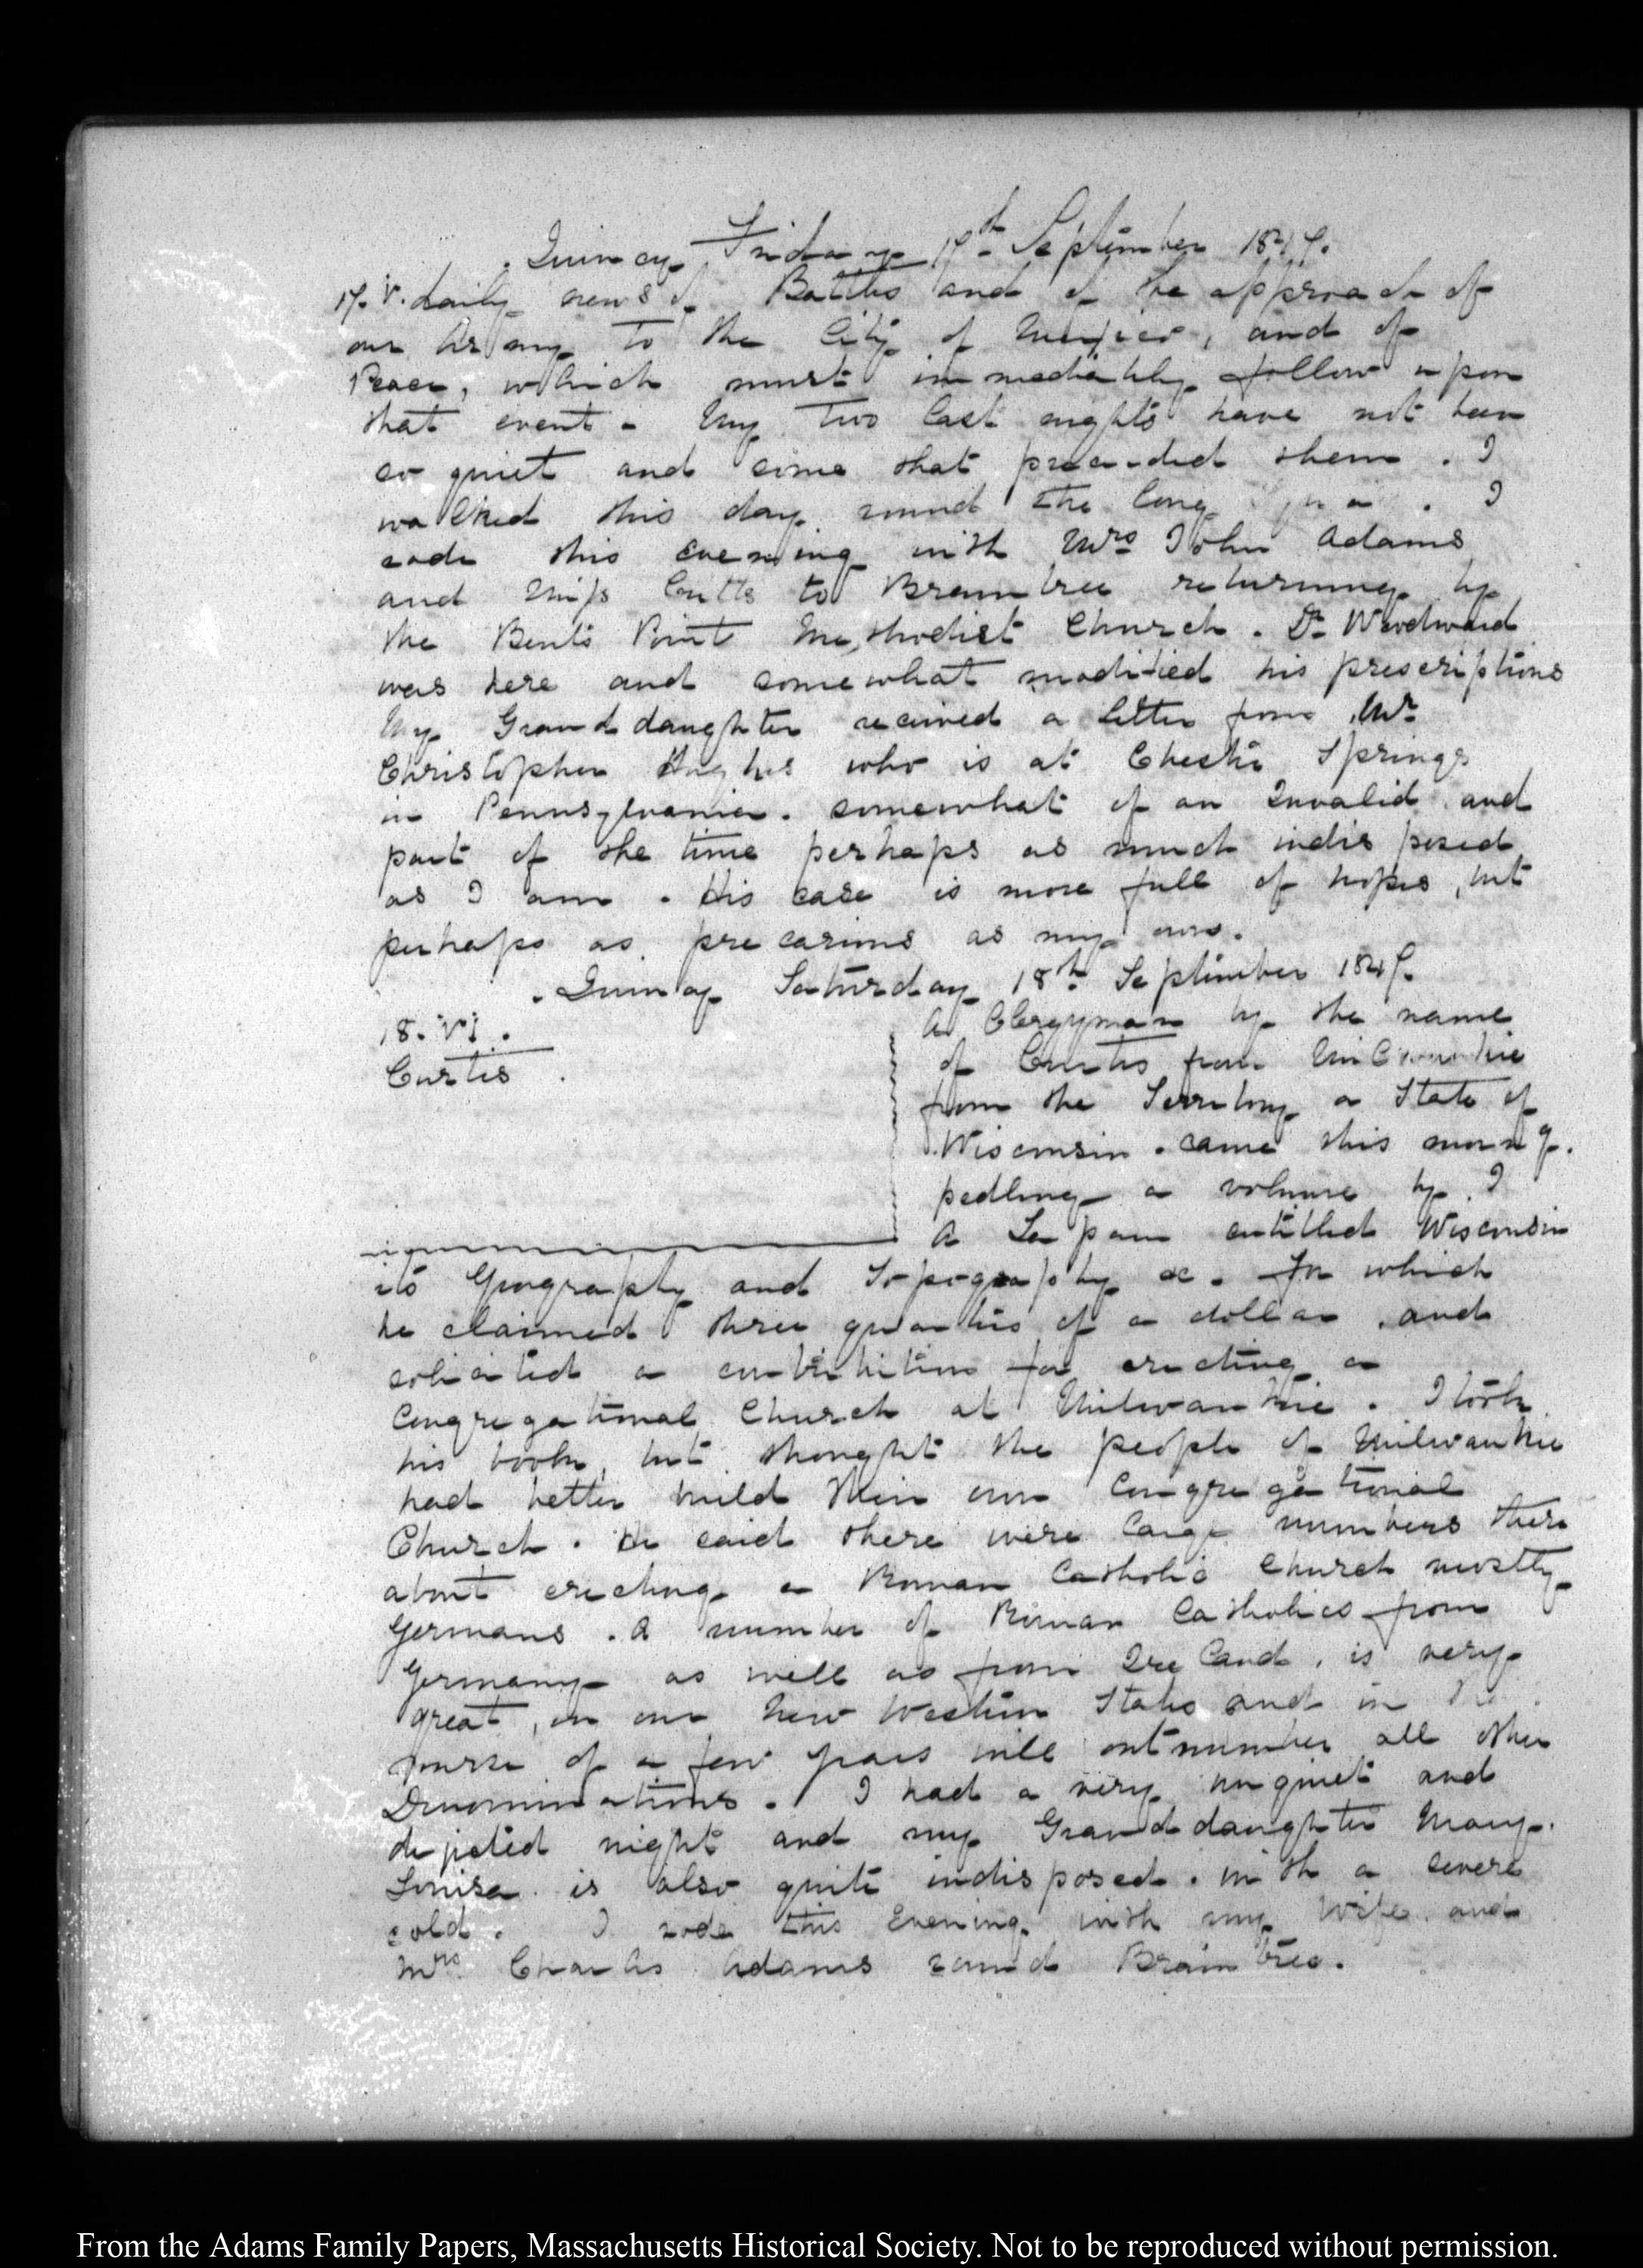 Quincy Friday 17th September 1847.
17. V. daily news of Battles and of the approach of
our Army to the City of Mexico, and of
Peace, which must immediately follow upon
that event. My two last nights have not been
so quiet and some that preceeded them. I
walked this day round the long . I
rode this evening with Mrs John Adams
and Miss Cutts to Braintree returning by
the Bent's Point Methodist Church. Dr Woodward
was here and somewhat modified his prescriptions
My Granddaughter received a letter from Mr
Christopher Hughes who is at Chester Springs
in Pennsylvania. somewhat of an Invalid and
part of the time perhaps as much indisposed
as I am. His case is more full of hopes, but
perhaps as precarious as my own.
Quincy Saturday 18th September 1847.
18. VI.
Curtis
A Clergyman by the name
of Curtis from
from the Territory or State of
Wisconsin. came this morng.
pedling a volume by I
A Lapam entitled Wisconsin
its Geography and Topography &c. For which
he claimed three quarters of a dollar. and
solicited a contribution for erecting a
Congregational Church at Milwaukie. I took
his book, but thought the people of Milwaukie
had better build their own Congregational
Church. He said there were large numbers there
about erecting a Roman Catholic Church mostly
Germans. A number of Roman Catholics from
Germany as well as from Ireland, is very
great, in our New Western States and in the
course of a few years will outnumber all other
Denominations. I had a very unquiet and
dejected night and my Granddaughter Mary
Louisa is also quite indisposed. with a severe
cold. I rode this Evening with my Wife and
Mrs Charles Adams round Braintree.
From the Adams Family Papers, Massachusetts Historical Society. Not to be reproduced without permission.